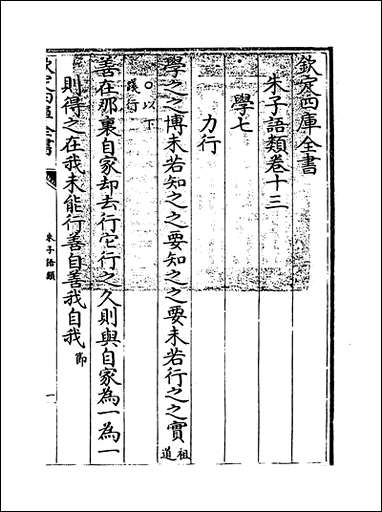 欽定四庫全書
朱子語類卷十三
學七
力行
學之之博未若知之之要知之之要未若行之之實祖道
○以下踐行
善在那裏自家却去行它行之久則與自家為一為一
則得之在我未能行善自善我自我節
欽定四庫全書
朱子語類
一